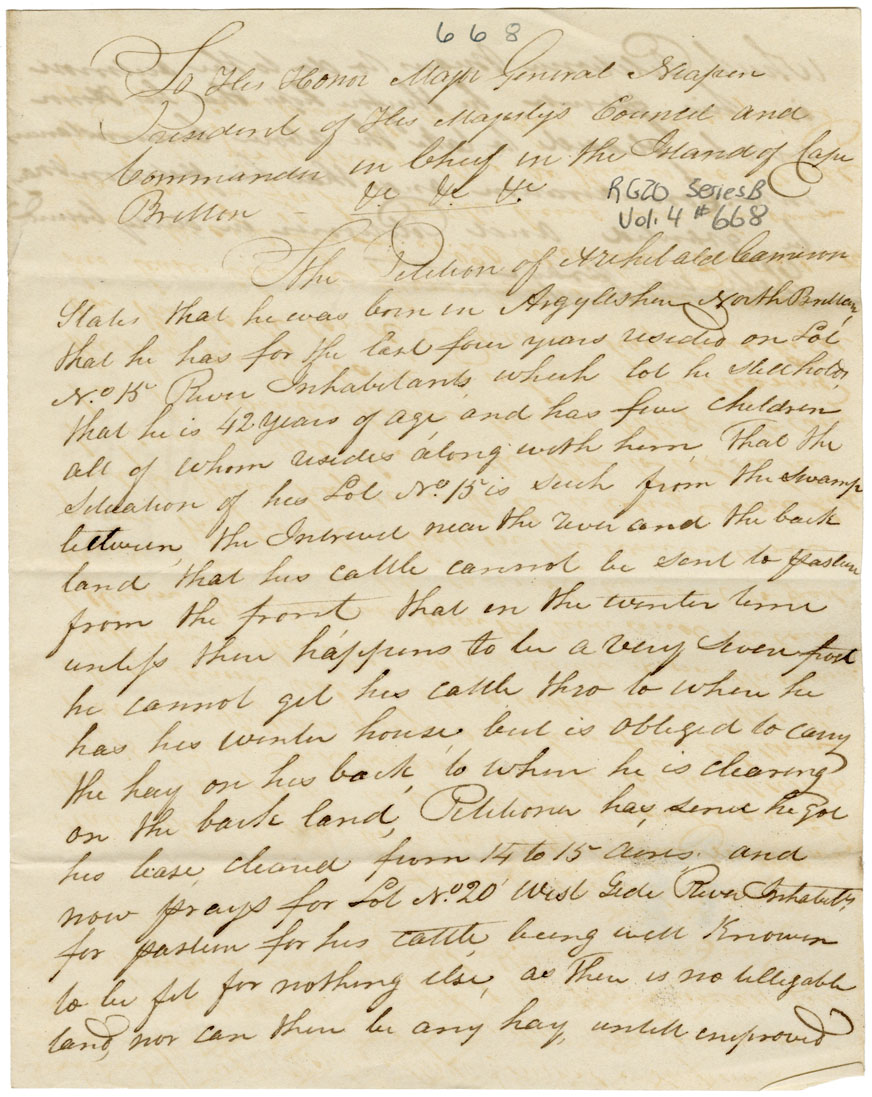 668
To His Honor Majr General Neapen
President of His Majestys Council and
Commander in Chief in the Island of Cape
Britton – &c &c &c
RG20 Series B
Vol. 4 #668
The Petition of Archibald Cameron
States that he was born in Argylishire North Brittan,
that he has for the last four years resided on Lot
No. 15 River Inhabitants, which lot he still holds,
that he is 42 years of age, and has five children
all of whom resides along with him, That the
Situation of his Lot No. 15 is such from the swamp
between, the Interval near the river and the back
land, that his cattle cannot be sent to pasture
from the front that in the winter time
unless there happens to be a very severe frost
he cannot get his cattle thro to where he
has his winter house, but is obliged to carry
the hay on his back, to where he is clearing
on the back land, Petitioner has, since he got
his lease, cleared from 14 to 15 acres and
now prays for Lot No. 20 West Side River Inhabits,
for pasture for his cattle, being well Known
to be fit for nothing else, as there is no tillegable
land, nor can there be any hay, untill improved